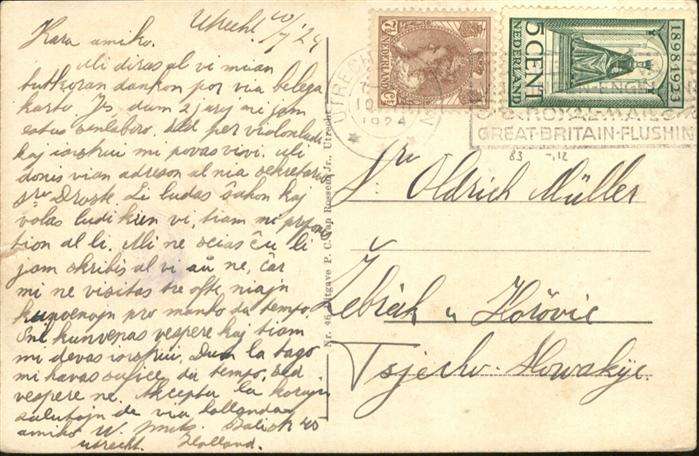 Utrecht 10/7 '24
Kara amiko.
Mi diras al vi mian
tutkoran dankon por via belega
karto Jes dum 2 jaroj mi jam
estas
kaj mi povas vivi. Mi
donis vian adreson al nia sekretario
Sro Droste. Li ludas ŝakon kaj
volas ludi kien vi, tiam mi
al li. Mi ne scias ĉu li
jam skribis al vi aŭ ne, ĉar
mi ne visitas tre ofte, niajn
kunvenojn pro manko da tempo.
Oni kunvenas vespere kaj tiam
mi devas Dum la tago
mi havas sufiĉe da tempo, sed
vespere ne. Akceptu la korajn
salutojn de via hollandan
amiko W. 40
Utrecht. Holland.
Nr. 46 Uitgave P. C. van Rossem Jr., Utrecht
7½ CT NEDERLAND
5 CENT
NEDERLAND
1898-1923
UTRECHT
1924
ROYAL MAIL
GREAT-BRITAIN-FLUSHIN
83 -.12
Sro Oldrich Müller
Žebrák u Hořovic
Tsjecho-Slowakije.